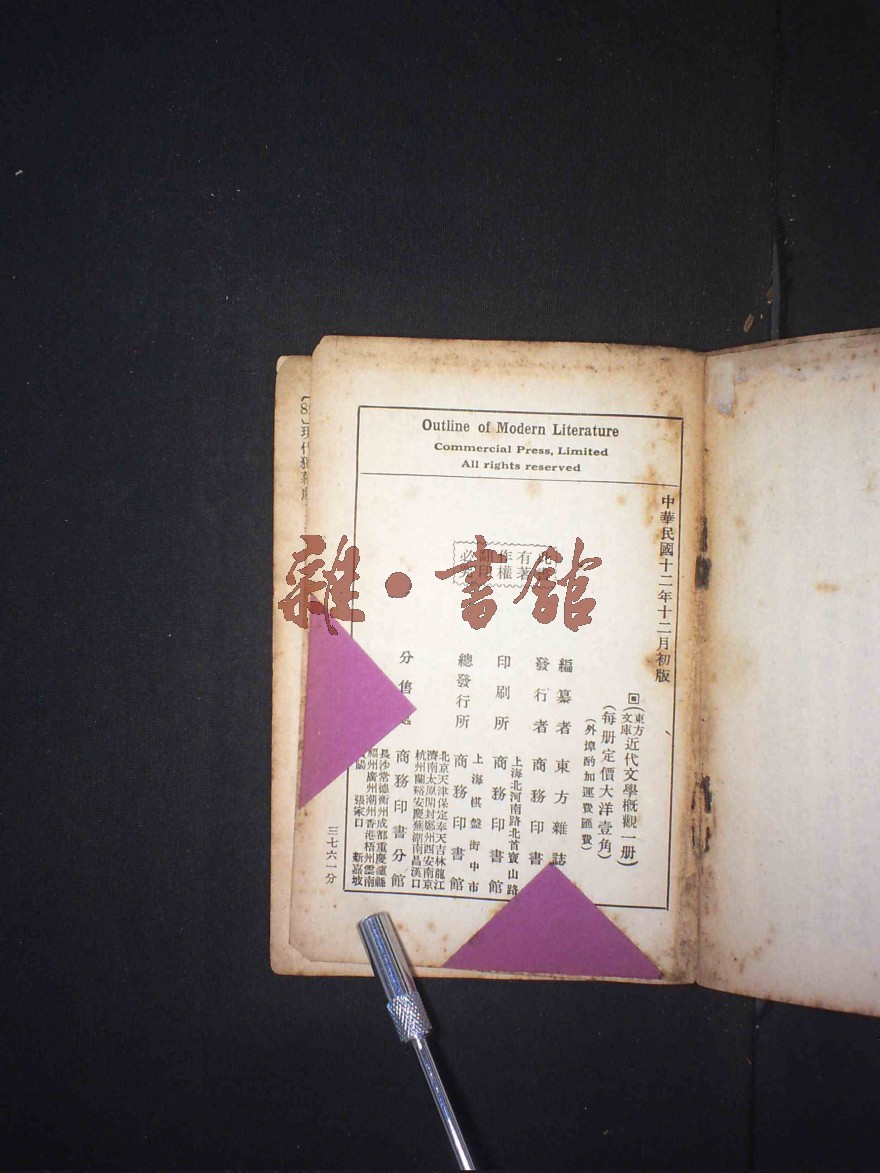 Outline of Modern Literature
Commercial Press, Limited
All rights reserved
中華民國十二年十二月初版
東方
文庫
近代文學概觀一册)
(每册定價大洋壹角)
(外埠酌加運費匯費)
此
有著
作權
翻印
必
編纂者 東方雜誌
發行者 商務印書
印刷所 上海北河南路北首寶山路
商務印書館
總發行所 上海棋盤街中市
商務印書館
分售處 商務印書分館
北京天津保定奉天吉林龍江
濟南太原開封鄭州西安南京
杭州蘭谿安慶蕪湖南昌漢口
長沙常德衡州成都重慶瀘縣
福州廣州潮州香港梧州雲南
張家口 新嘉坡
三七六一分
雜·書館